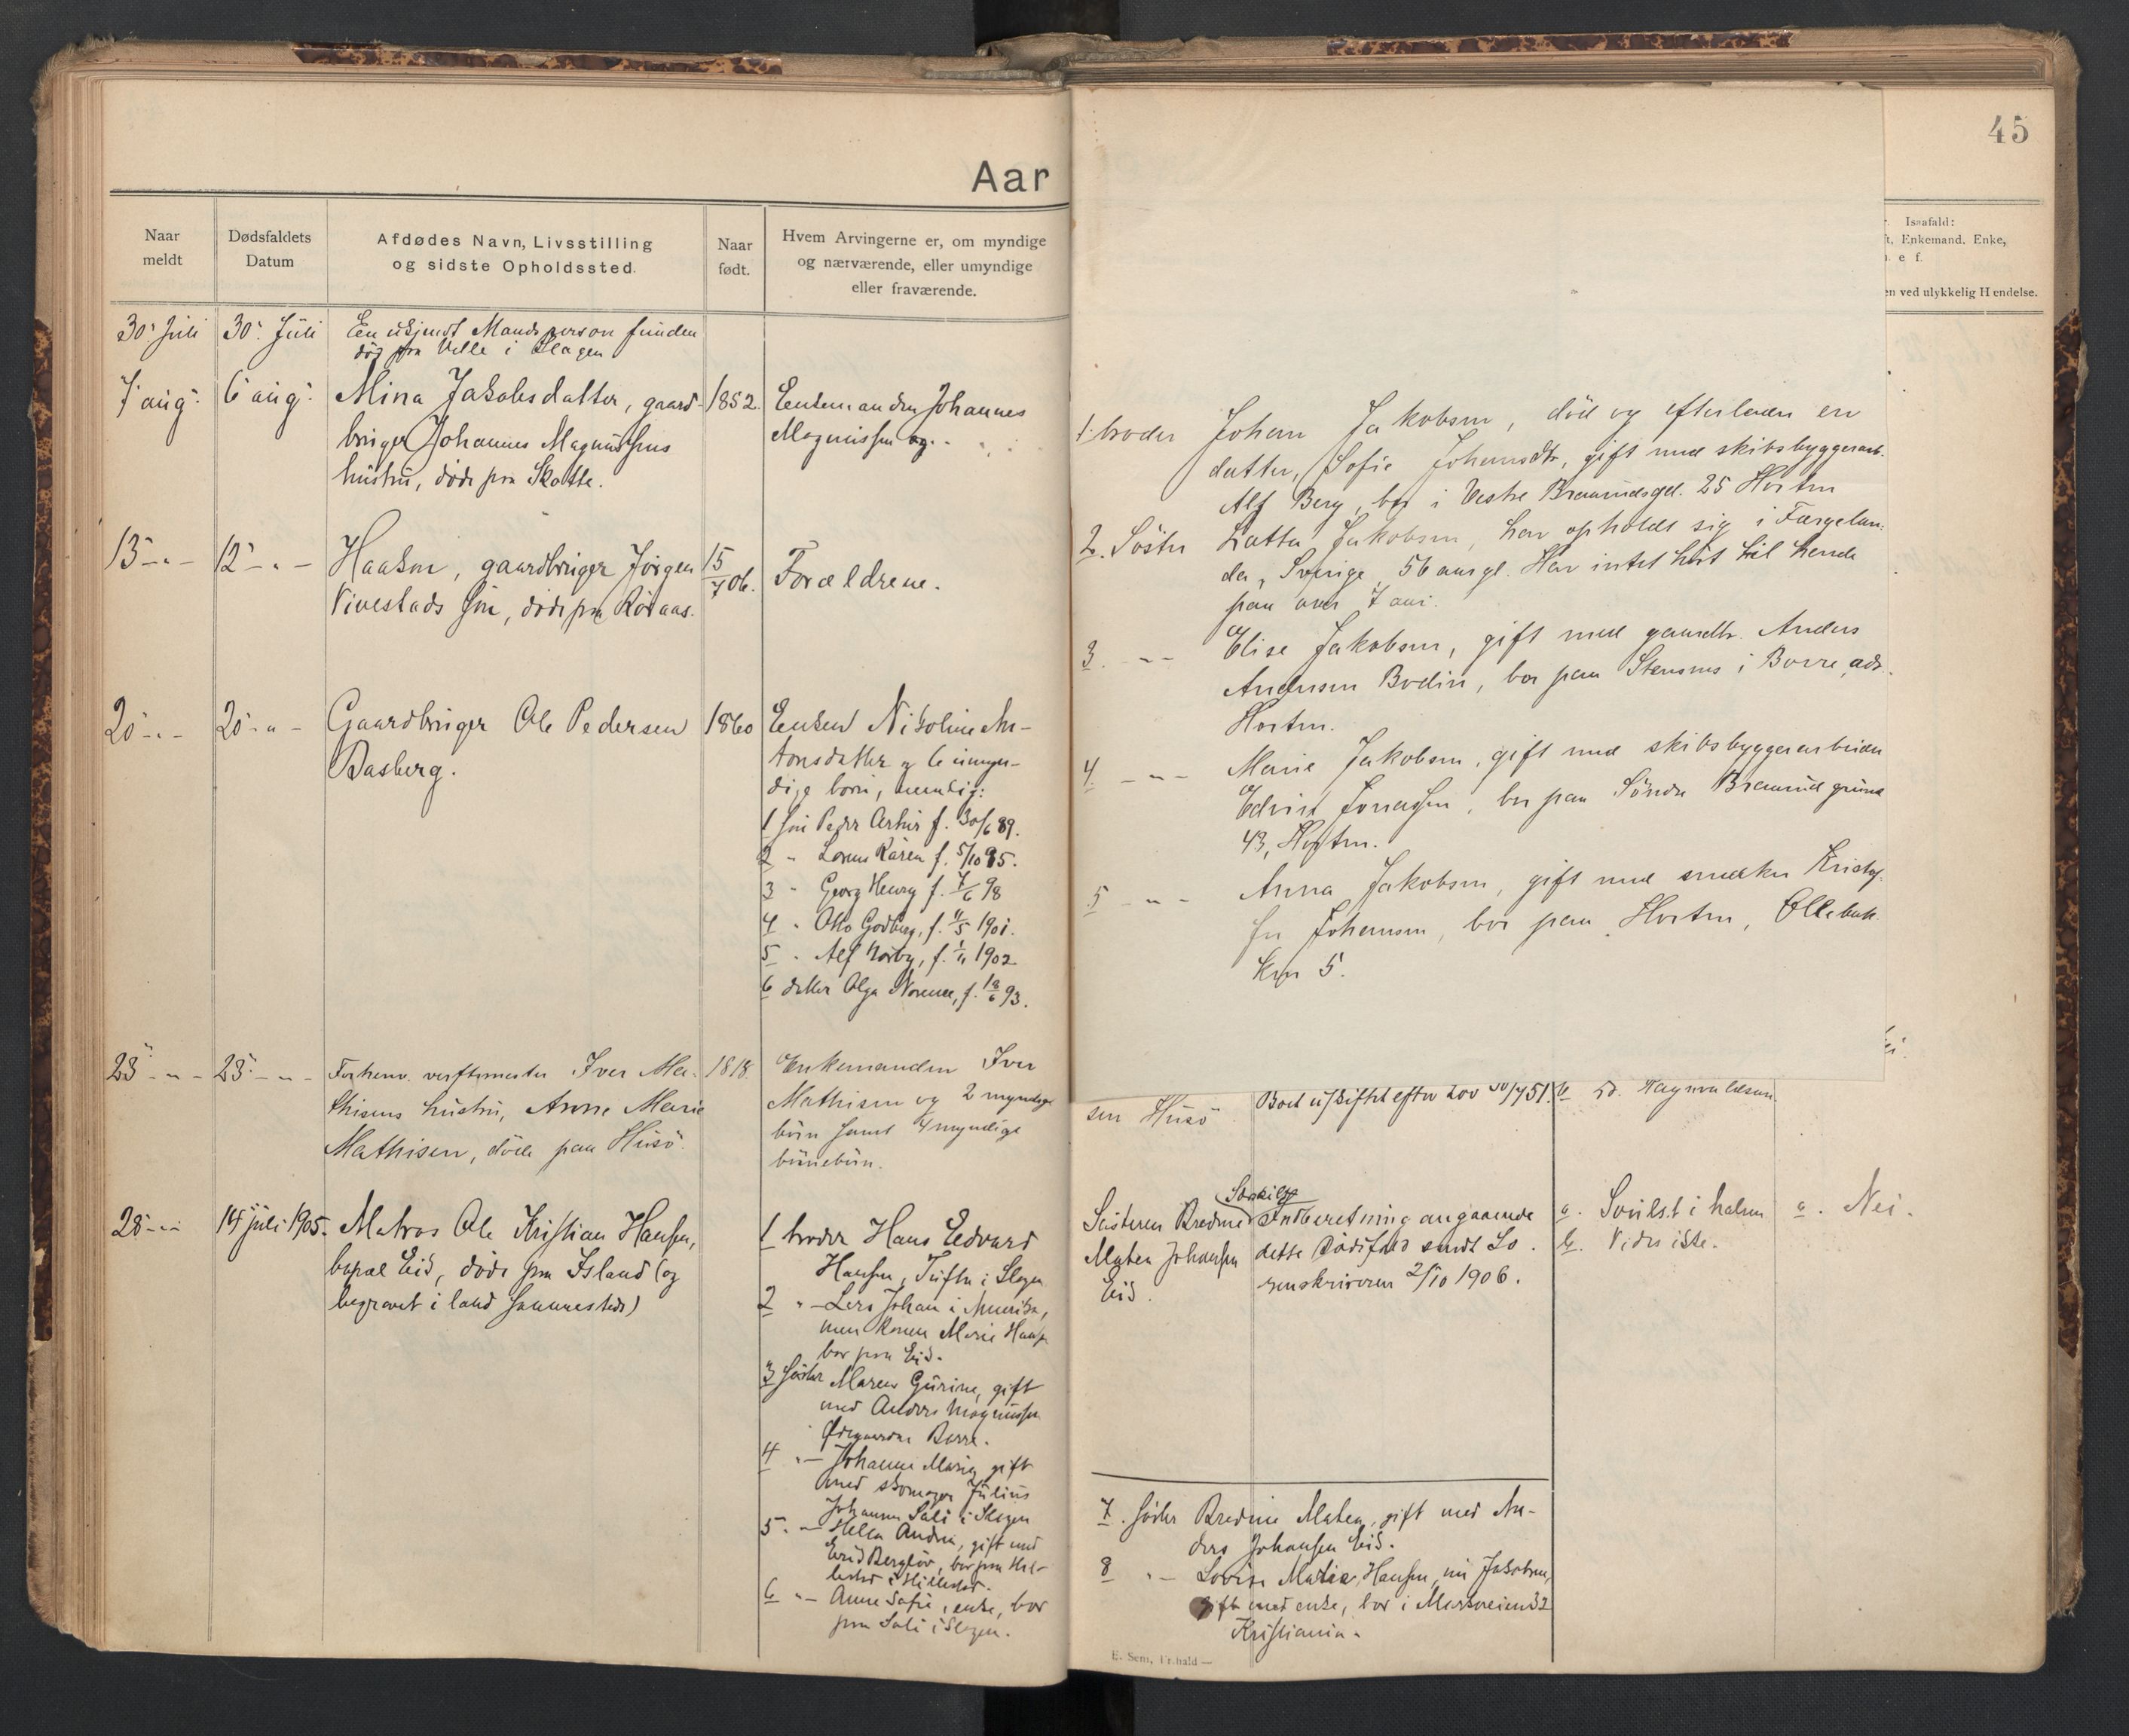 45
Aar
Naar
meldt
Dødsfaldets
Datum
Afdødes Navn, Livsstilling
og sidste Opholdssted.
Naar
født.
Hvem Arvingerne er, om myndige
og nærværende, eller umyndige
eller fraværende.
Isaafald:
Enkemand. Enke,
e f.
en ved ulykkelig Hendelse.
30' Juli
30' Juli
En ukjendt Mandsperson funden
død paa Velle i Slagen
7' aug:
6' aug:
Mina Jakobsdatter, gaard-
bruger Johannes Magnussens
hustru, døde paa Skotte.
1852.
Enkemanden Johannes
Magnussen og
13 - " -
12 - " -
Haakon, gaardbruger Jörgen
Vivestads sön, döde paa Röraas.
15/7 06.
Forældrene.
20 - " -
20 - " -
Gaardbruger Ole Pedersen
Basberg.
1860
Enken Nikoline An-
tonsdatter og 6 umyn-
dige börn, nemlig:
1 sön Peder Artur f. 30/6 89.
2 " Lorens Karen f. 5/10 95.
3 " Georg Henry f. 7/6 98
4 " Otto Godberg, f. 11/5 1901.
5 " Alf Norby, f. 1/11 1902
6 datter Olga Norence, f. 18/6 93.
23 - " -
23 - " -
Forhenv. verftsmester Iver Ma-
thisens hustru, Anne Marie
Mathisen, döde paa Husö.
1818.
Enkemanden Iver
Mathisen og 2 myndige
börn samt 4 myndige
börnebörn.
28 - " -
14 juli 1905.
Matros Ole Kristian Hansen,
bopæl Eid, döde paa Island (og
begravet i land sammesteds)
1 broder Hans Edvard
Hansen, Tufte i Slagen
2 " - Lars Johan i Amerika,
men konen Marie Hansen
bor paa Eid.
3 Söster Maren Gurine, gift
med Anders Magnussen
Ödegaarden Borre.
4 " - Johanne Marie, gift
med skomager Julius
Johansen Sali i Slagen
5 " - Hella Andrea, gift med
bor paa Hil-
lestad i Hillestad.
6 " - Anne Sofie, enke, bor
paa Sali i Slagen.
1. broder Johan Jakobsen, död og efterlader en
datter, Sofie Johansdtr, gift med skibsbyggerarb.
Alf Berg, bor i Vestre Braarudsgd. 25 Horten
2. Söster Lotta Jakobsen, har opholdt sig i Færgelan-
da, Sverige, 56 aar gl. Har intet hört til hende
paa over 7 aar.
3. - " - Elise Jakobsen, gift med gaardbr. Anders
Andersen Bodin, bor paa Stensnes i Borre, adr.
Horten.
4. - " - Marie Jakobsen, gift med skibsbyggerarbeider
Edvin Jonassen, bor paa Söndre Braarud grund
43, Horten.
5 - " - Anna Jakobsen, gift med snedker Kristof-
fer Johansen, bor paa Horten, Ollebak-
ken 5.
sen Husö
Boet uskiftet efter Lov 30/7 51.
b D. Ragnvaldsen
Søsteren Bredine
Matea Johansen
Eid.
Særskilt
Indberetning angaaende
dette Dödsfald sendt So-
renskriveren 2/10 1906.
a. Svulst i halsen
b. Vides ikke.
a. Nei.
7. Söster Bredine Matea, gift med An-
ders Johansen Eid.
8 " - Lovise Matea Hansen, nu Jakobsen,
gift med enke, bor i Markveien 32
Kristiania.
E. Sem, Fr.hald —